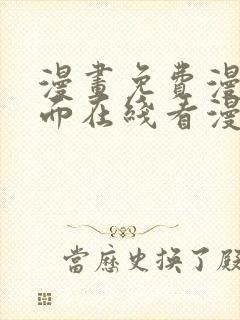 漫畫免費漫
而在綫看漫
當歷史換了殿